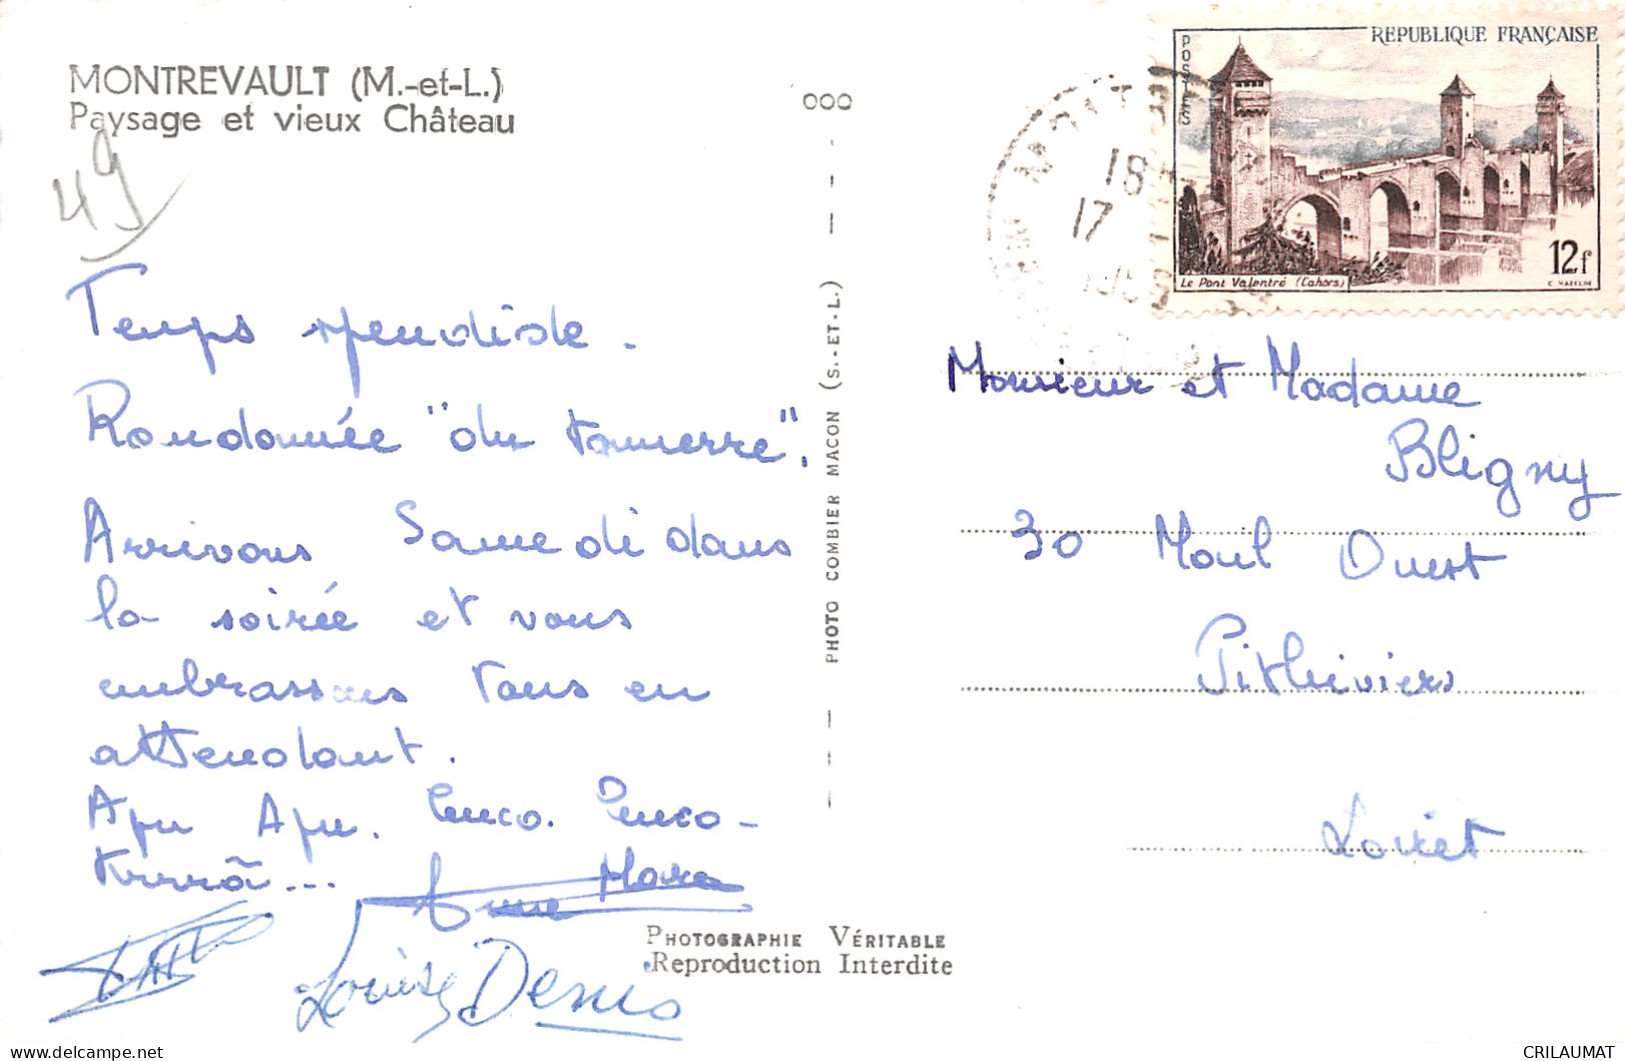 MONTREVAULT (M.-et-L.)
Paysage et vieux Château
49
Temps splendide.
Randonnée "du tonnerre".
Arrivons Samedi dans
la soirée et vous
embrassons tous en
attendant.
000
PHOTO COMBIER MACON (S.-ET-L.)
PHOTOGRAPHIE VÉRITABLE
Reproduction Interdite
Louise Denis
REPUBLIQUE FRANÇAISE
POSTES
12f
Le Pont Valentré (Cahors)
18
17
1959
Monsieur et Madame
Bligny
30 Mail Ouest
Pithiviers
Loiret
CRILAUMAT
delcampe.net